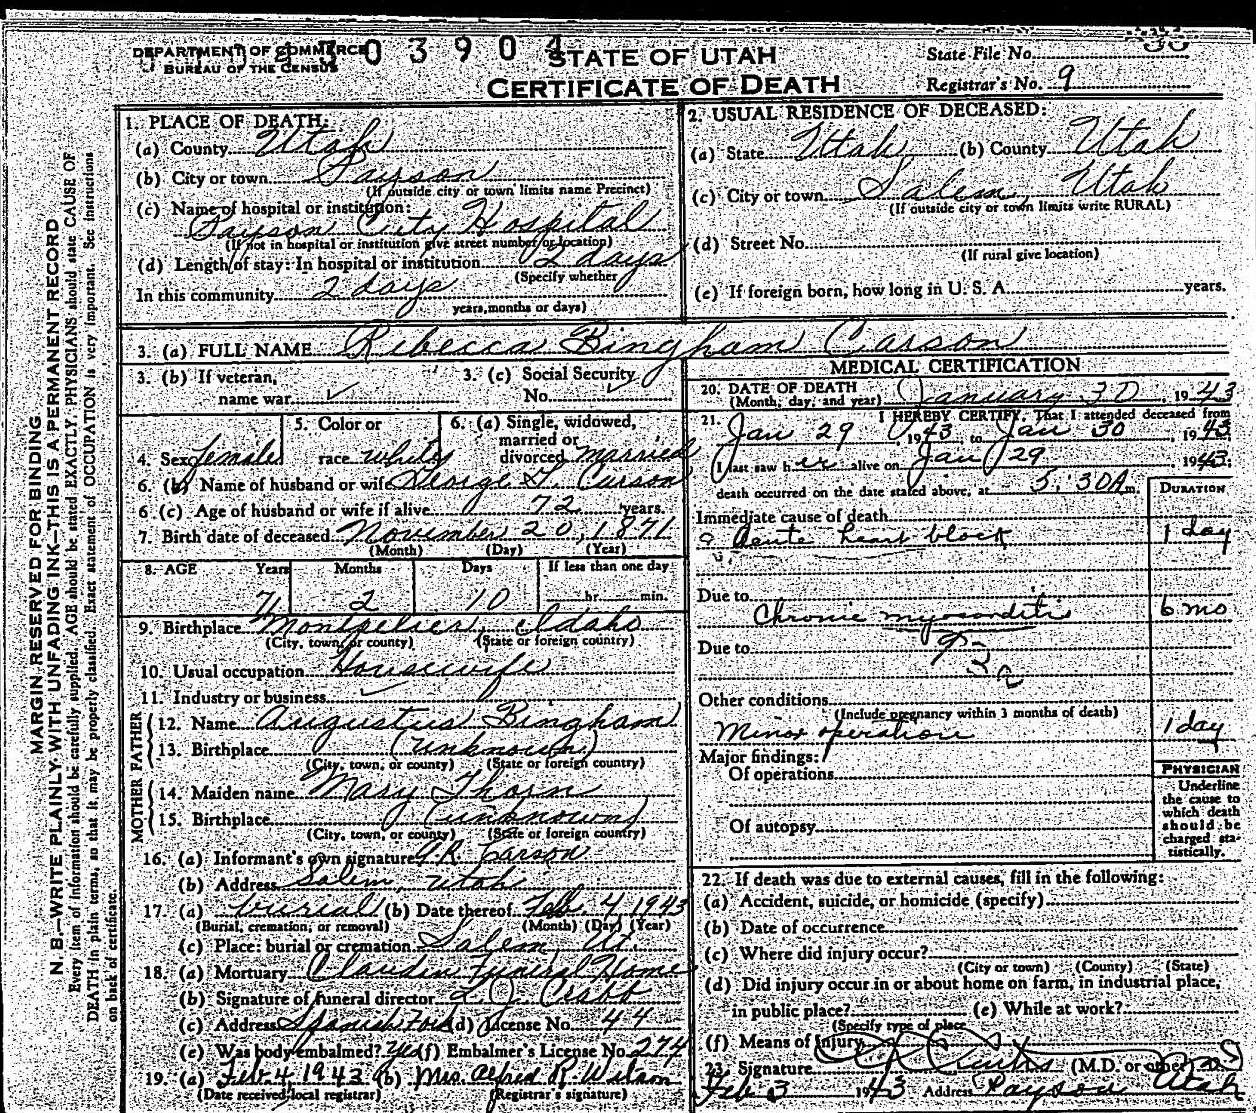 DEPARTMENT OF COMMERCE
BUREAU OF THE CENSUS
3 0 3 9 0 4
STATE OF UTAH
CERTIFICATE OF DEATH
State File No.
Registrar's No. 9
MARGIN RESERVED FOR BINDING
N. B.—WRITE PLAINLY WITH UNFADING INK—THIS IS A PERMANENT RECORD
Every item of information should be carefully supplied. AGE should be stated EXACTLY. PHYSICIANS should state CAUSE OF
DEATH in plain terms, so that it may be properly classified. Exact statement of OCCUPATION is very important. See instructions
on back of certificate.
1. PLACE OF DEATH:
(a) County Utah
(b) City or town Payson
(If outside city or town limits name Precinct)
(c) Name of hospital or institution:
Payson City Hospital
(If not in hospital or institution give street number or location)
(d) Length of stay: In hospital or institution 2 days
(Specify whether
In this community 2 days
years, months or days)
2. USUAL RESIDENCE OF DECEASED:
(a) State Utah (b) County Utah
(c) City or town Salem, Utah
(If outside city or town limits write RURAL)
(d) Street No.
(If rural give location)
(e) If foreign born, how long in U. S. A. years.
3. (a) FULL NAME Rebecca Bingham Carson
3. (b) If veteran,
name war
3. (c) Social Security
No.
4. Sex female
5. Color or
race white
6. (a) Single, widowed,
married or
divorced married
6. (b) Name of husband or wife George T. Carson
6 (c) Age of husband or wife if alive 72 years.
7. Birth date of deceased November 20, 1871
(Month) (Day) (Year)
8. AGE Years Months Days If less than one day
71 2 10 hr. min.
9. Birthplace Montpelier, Idaho
(City, town, or county) (State or foreign country)
10. Usual occupation Housewife
11. Industry or business
FATHER
12. Name Augustus Bingham
13. Birthplace (unknown)
(City, town, or county) (State or foreign country)
MOTHER
14. Maiden name Mary Thorn
15. Birthplace (unknown)
(City, town, or county) (State or foreign country)
16. (a) Informant's own signature Carson
(b) Address Salem, Utah
17. (a) burial (b) Date thereof Feb. 4 1943
(Burial, cremation, or removal) (Month) (Day) (Year)
(c) Place: burial or cremation Salem, Ut.
18. (a) Mortuary Claudin Funeral Home
(b) Signature of funeral director
(c) Address Spanish Fork (d) License No. 44
(e) Was body embalmed? Yes (f) Embalmer's License No. 274
19. (a) Feb. 4, 1943 (b) Mrs. Alfred R. Wilson
(Date received local registrar) (Registrar's signature)
MEDICAL CERTIFICATION
20. DATE OF DEATH
(Month, day, and year) January 30, 1943
21. I HEREBY CERTIFY, That I attended deceased from
Jan 29, 1943, to Jan 30, 1943
I last saw her alive on Jan 29, 1943;
death occurred on the date stated above, at 5:30 A m.
DURATION
Immediate cause of death
Acute heart block 1 day
Due to
Chronic myocarditi 6 mo
Due to
Other conditions
(Include pregnancy within 3 months of death)
Minor operation 1 day
Major findings:
Of operations
Of autopsy
PHYSICIAN
Underline
the cause to
which death
should be
charged sta-
tistically.
22. If death was due to external causes, fill in the following:
(a) Accident, suicide, or homicide (specify)
(b) Date of occurrence
(c) Where did injury occur?
(City or town) (County) (State)
(d) Did injury occur in or about home on farm, in industrial place,
in public place? (e) While at work?
(Specify type of place
(f) Means of Injury
23. Signature Curtis (M.D. or other) MD
Feb 3 1943 Address Payson Utah